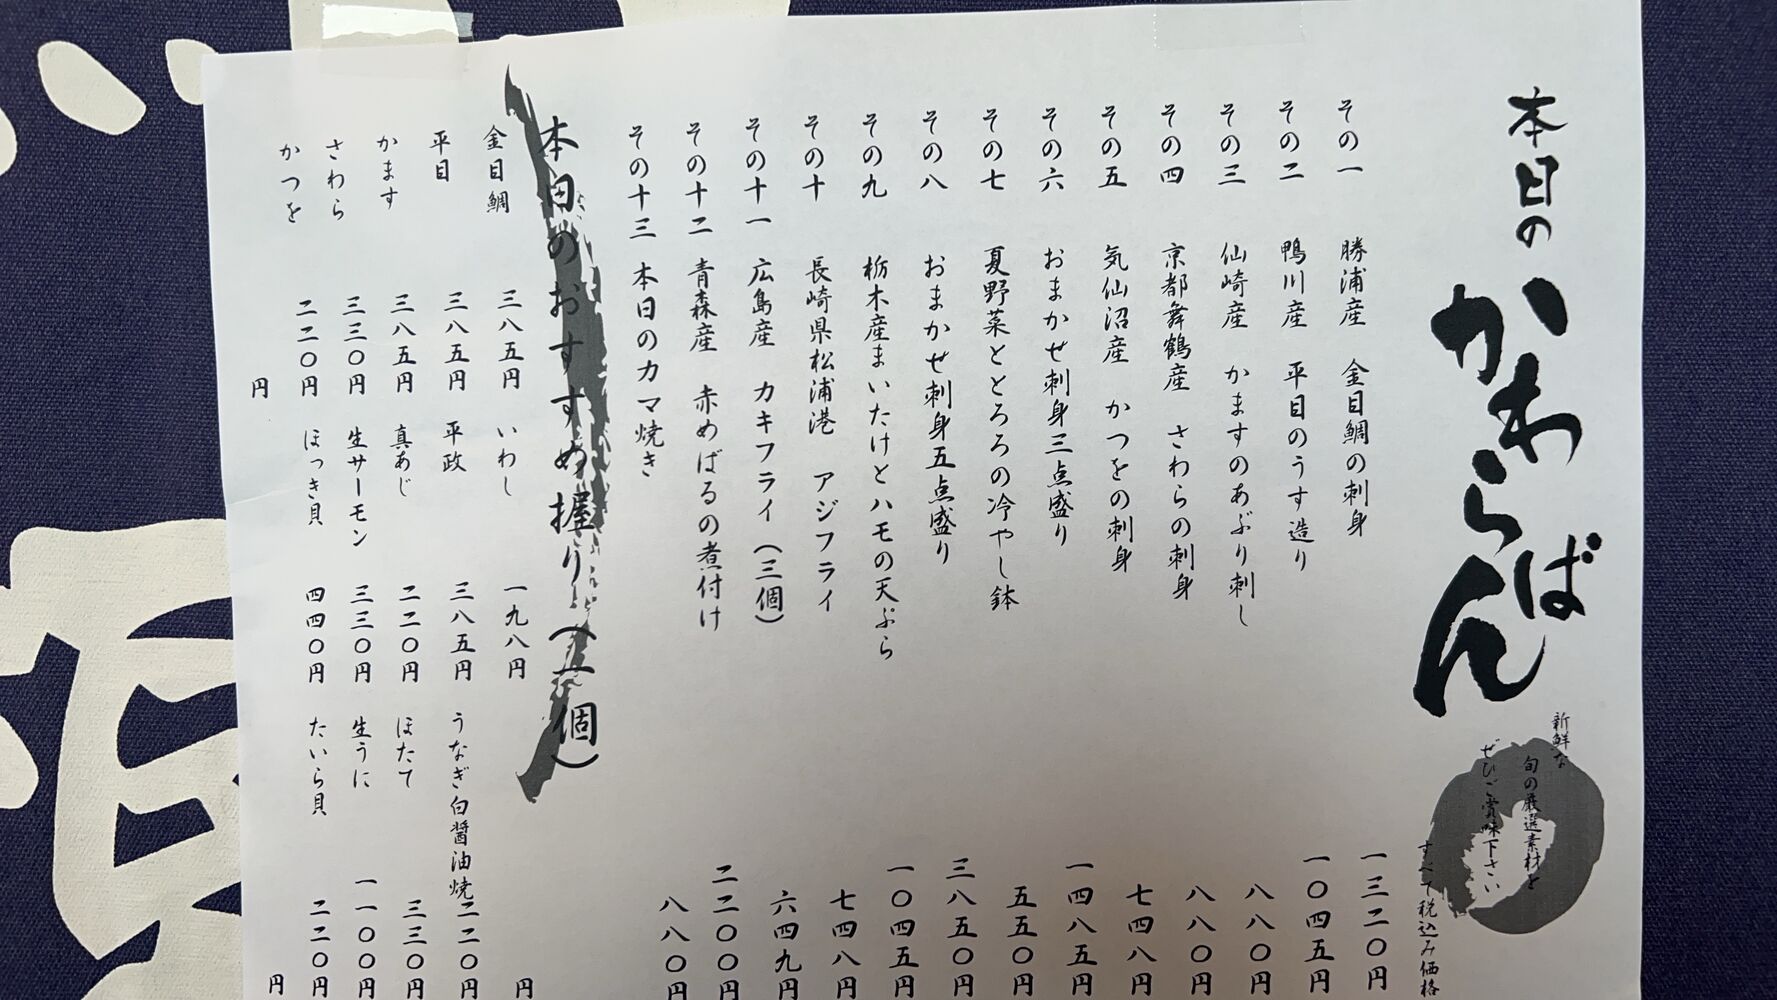 本日のかわらばん
新鮮な
旬の厳選素材を
ぜひご賞味下さい
すべて税込み価格
その一 勝浦産 金目鯛の刺身 一三二〇円
その二 鴨川産 平目のうす造り 一〇四五円
その三 仙崎産 かますのあぶり刺し 八八〇円
その四 京都舞鶴産 さわらの刺身 八八〇円
その五 気仙沼産 かつをの刺身 七四八円
その六 おまかせ刺身三点盛り 一四八五円
その七 夏野菜ととろろの冷やし鉢 五五〇円
その八 おまかせ刺身五点盛り 三八五〇円
その九 栃木産まいたけとハモの天ぷら 一〇四五円
その十 長崎県松浦港 アジフライ 七四八円
その十一 広島産 カキフライ(三個) 六四九円
その十二 青森産 赤めばるの煮付け 二二〇〇円
その十三 本日のカマ焼き 八八〇円
本日のおすすめ握り(一個)
金目鯛 三八五円 いわし 一九八円 円
平目 三八五円 平政 三八五円 うなぎ白醤油焼 二二〇円
かます 三八五円 真あじ 二二〇円 ほたて 三三〇円
さわら 三三〇円 生サーモン 三三〇円 生うに 一一〇〇円
かつを 二二〇円 ほっき貝 四四〇円 たいら貝 二二〇円
円 円